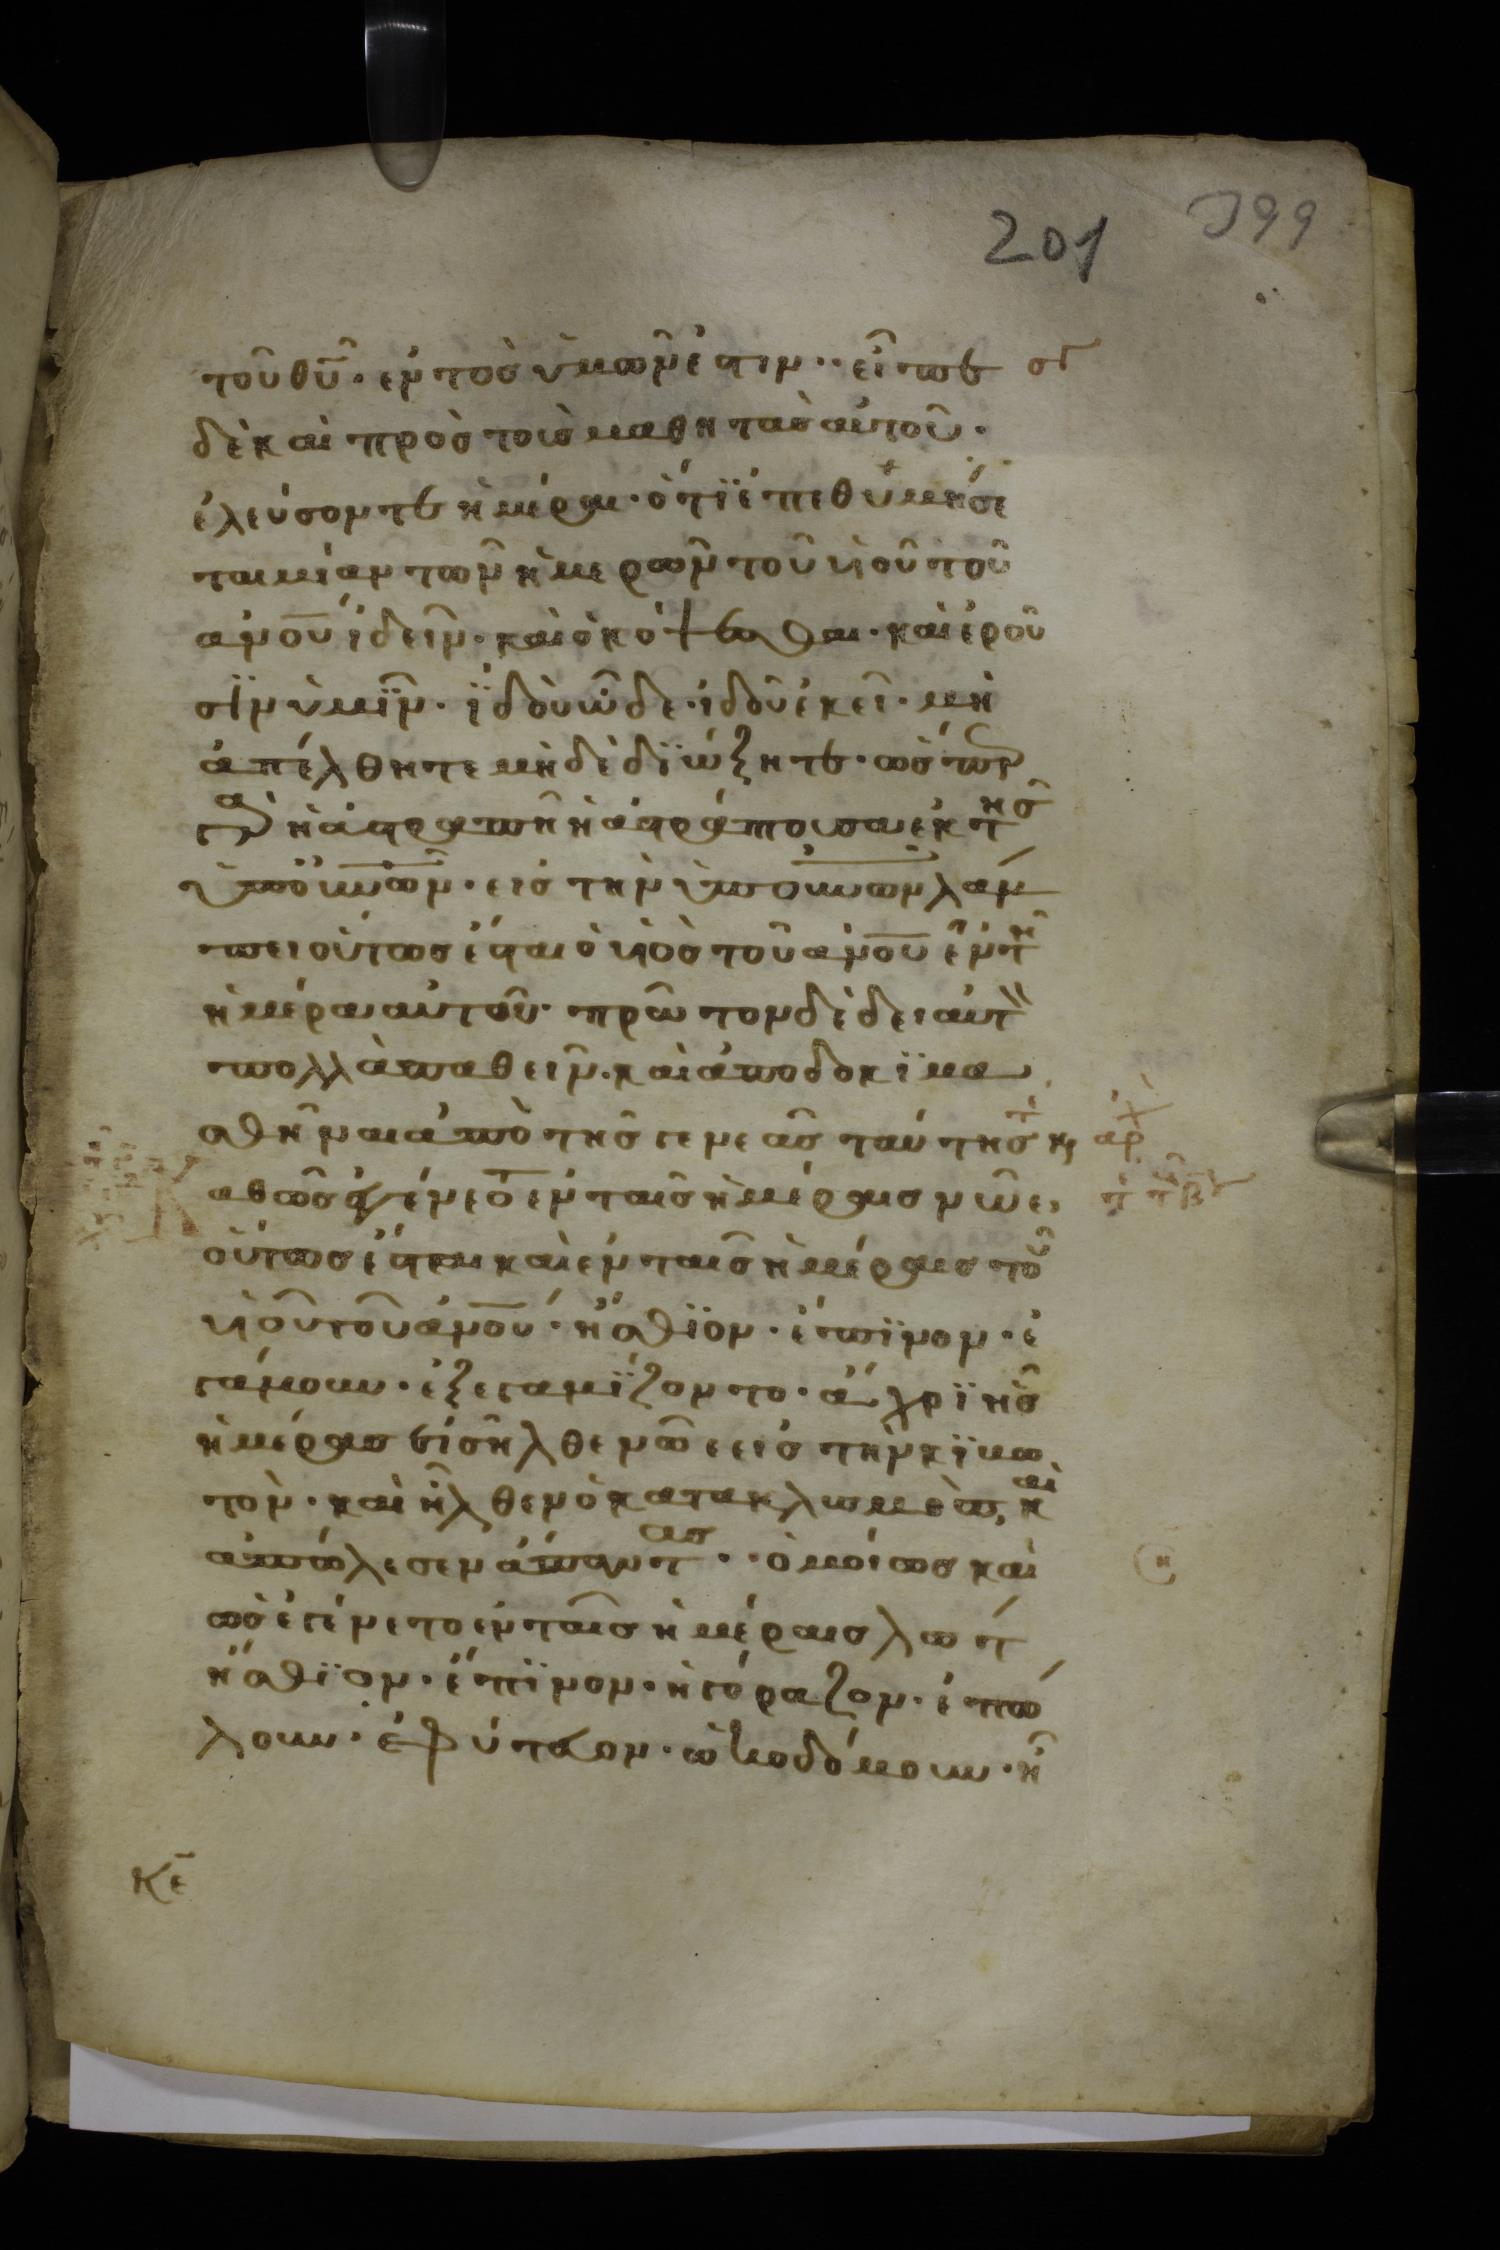 201 399
τοῦ θ̅υ̅· ἐντὸς ὑμῶν ἐστιν·· εἶπε
δὲ καὶ πρὸς τοὺς μαθητὰς αὐτοῦ·
ἐλεύσοντε ἡμέραι· ὅτϊ ἐπεθυμήσε
ται μίαν τῶν ἡμερῶν τοῦ υἱοῦ τοῦ
α̅ν̅ο̅υ̅ ἰδεῖν· καὶ οὐκ ὄψεσθαι· καὶ ἐροῦ
σϊν ὑμϊν· ϊδοὺ ὧδε· ἰδοῦ ἐκεῖ· μὴ
ἀπέλθητε μὴ δὲ δϊώξητε· ὥσπερ
γὰρ ἡ ἀστραπὴ ἡ ἀστράπτουσα ἐκ τῆς
ὑπ' ο̅υ̅ν̅ω̅ν̅· εἰς τὴν ὑπ' ο̅υ̅ν̅ω̅ν̅ λάμ
πει οὕτως ἔσται ὁ υἱὸς τοῦ α̅ν̅ο̅υ̅ ἐν τῆ
ἡμέρα αὐτοῦ· πρῶτον δὲ δεῖ αὐτ
πολλὰ παθεῖν· καὶ ἀποδοκϊμα
σθῆναι ἀπὸ τῆς γενεᾶς ταύτης κ
αθὼς ἐγένετο ἐν ταῖς ἡμέραις νῶε,
οὕτως ἔσται καὶ ἐν ταῖς ἡμέραις τοῦ
υἱοῦ τοῦ α̅ν̅ο̅υ̅· ἤσθϊον· ἔπϊνον· ἐ
γάμουν· ἐξεγαμϊζοντο· ἄχρϊ ἧς
ἡμέρας εἰσῆλθε νῶε εἰς τὴν κϊνω
τὸν· καὶ ἦλθεν ὁ κατακλυσμὸς, καὶ
ἀπώλεσεν ἅπαντας·· ὁμοίως καὶ
ὡς ἐγένετο ἐν ταῖς ἡμέραις λωτ
ἤσθϊον· ἔπϊνον· ἠγόραζον· ἐπώ
λουν· ἐφύτευον· ὠκοδόμουν· ἧ
κε